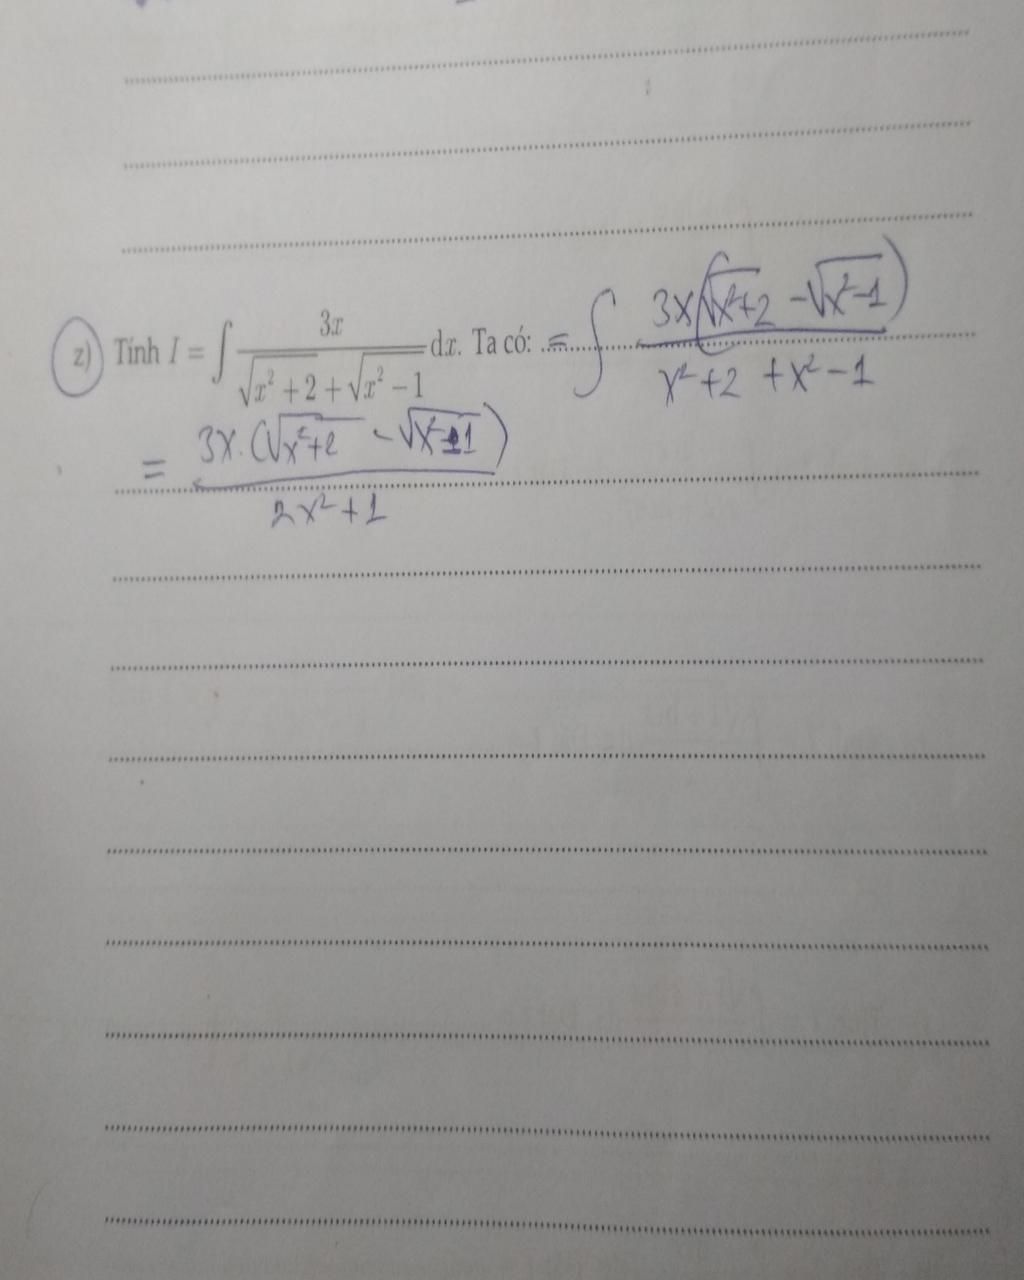 z) Tính I = ∫ 3x / (√(x² + 2) + √(x² − 1)) dx. Ta có: = ∫ 3x(√(x²+2) − √(x²−1)) / (x²+2 + x²−1)
= 3x.(√(x²+2) − √(x²−1)) / (2x²+1)